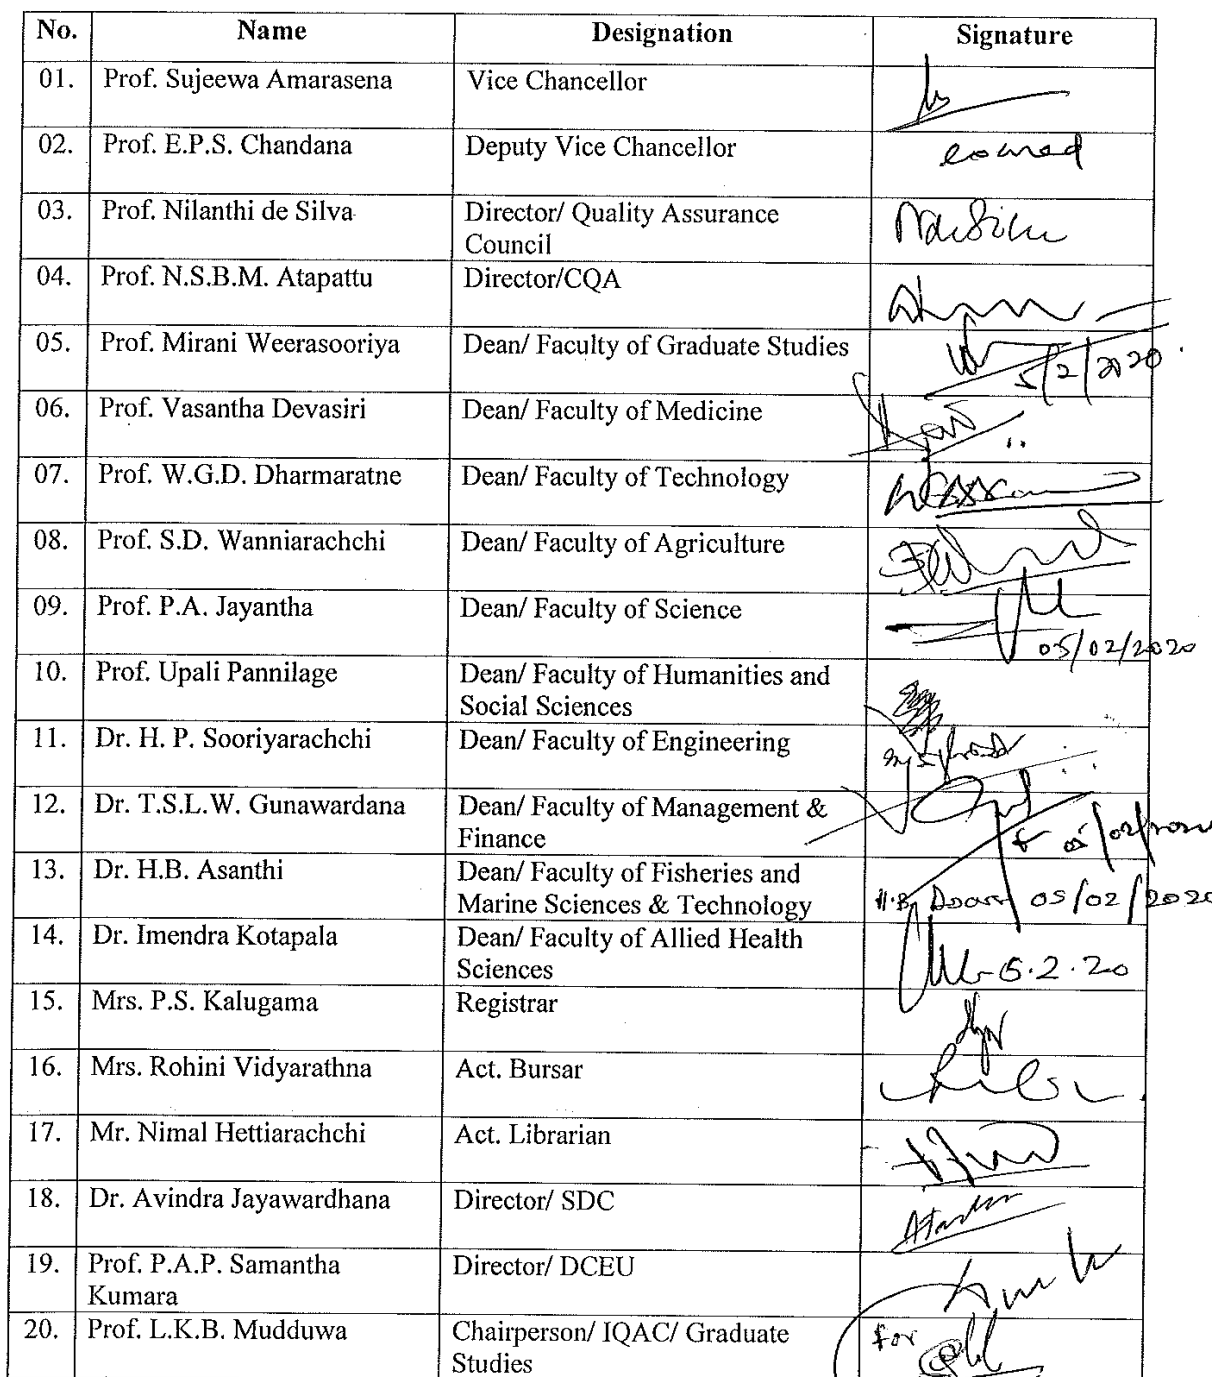 No. Name Designation Signature
01. Prof. Sujeewa Amarasena Vice Chancellor
02. Prof. E.P.S. Chandana Deputy Vice Chancellor
03. Prof. Nilanthi de Silva Director/ Quality Assurance
Council
04. Prof. N.S.B.M. Atapattu Director/CQA
05. Prof. Mirani Weerasooriya Dean/ Faculty of Graduate Studies
5/2/2020
06. Prof. Vasantha Devasiri Dean/ Faculty of Medicine
07. Prof. W.G.D. Dharmaratne Dean/ Faculty of Technology
08. Prof. S.D. Wanniarachchi Dean/ Faculty of Agriculture
09. Prof. P.A. Jayantha Dean/ Faculty of Science
05/02/2020
10. Prof. Upali Pannilage Dean/ Faculty of Humanities and
Social Sciences
11. Dr. H. P. Sooriyarachchi Dean/ Faculty of Engineering
12. Dr. T.S.L.W. Gunawardana Dean/ Faculty of Management &
Finance 05/02/2020
13. Dr. H.B. Asanthi Dean/ Faculty of Fisheries and
Marine Sciences & Technology H.B. 05/02/2020
14. Dr. Imendra Kotapala Dean/ Faculty of Allied Health
Sciences 5.2.20
15. Mrs. P.S. Kalugama Registrar
16. Mrs. Rohini Vidyarathna Act. Bursar
17. Mr. Nimal Hettiarachchi Act. Librarian
18. Dr. Avindra Jayawardhana Director/ SDC
19. Prof. P.A.P. Samantha Director/ DCEU
Kumara
20. Prof. L.K.B. Mudduwa Chairperson/ IQAC/ Graduate for
Studies